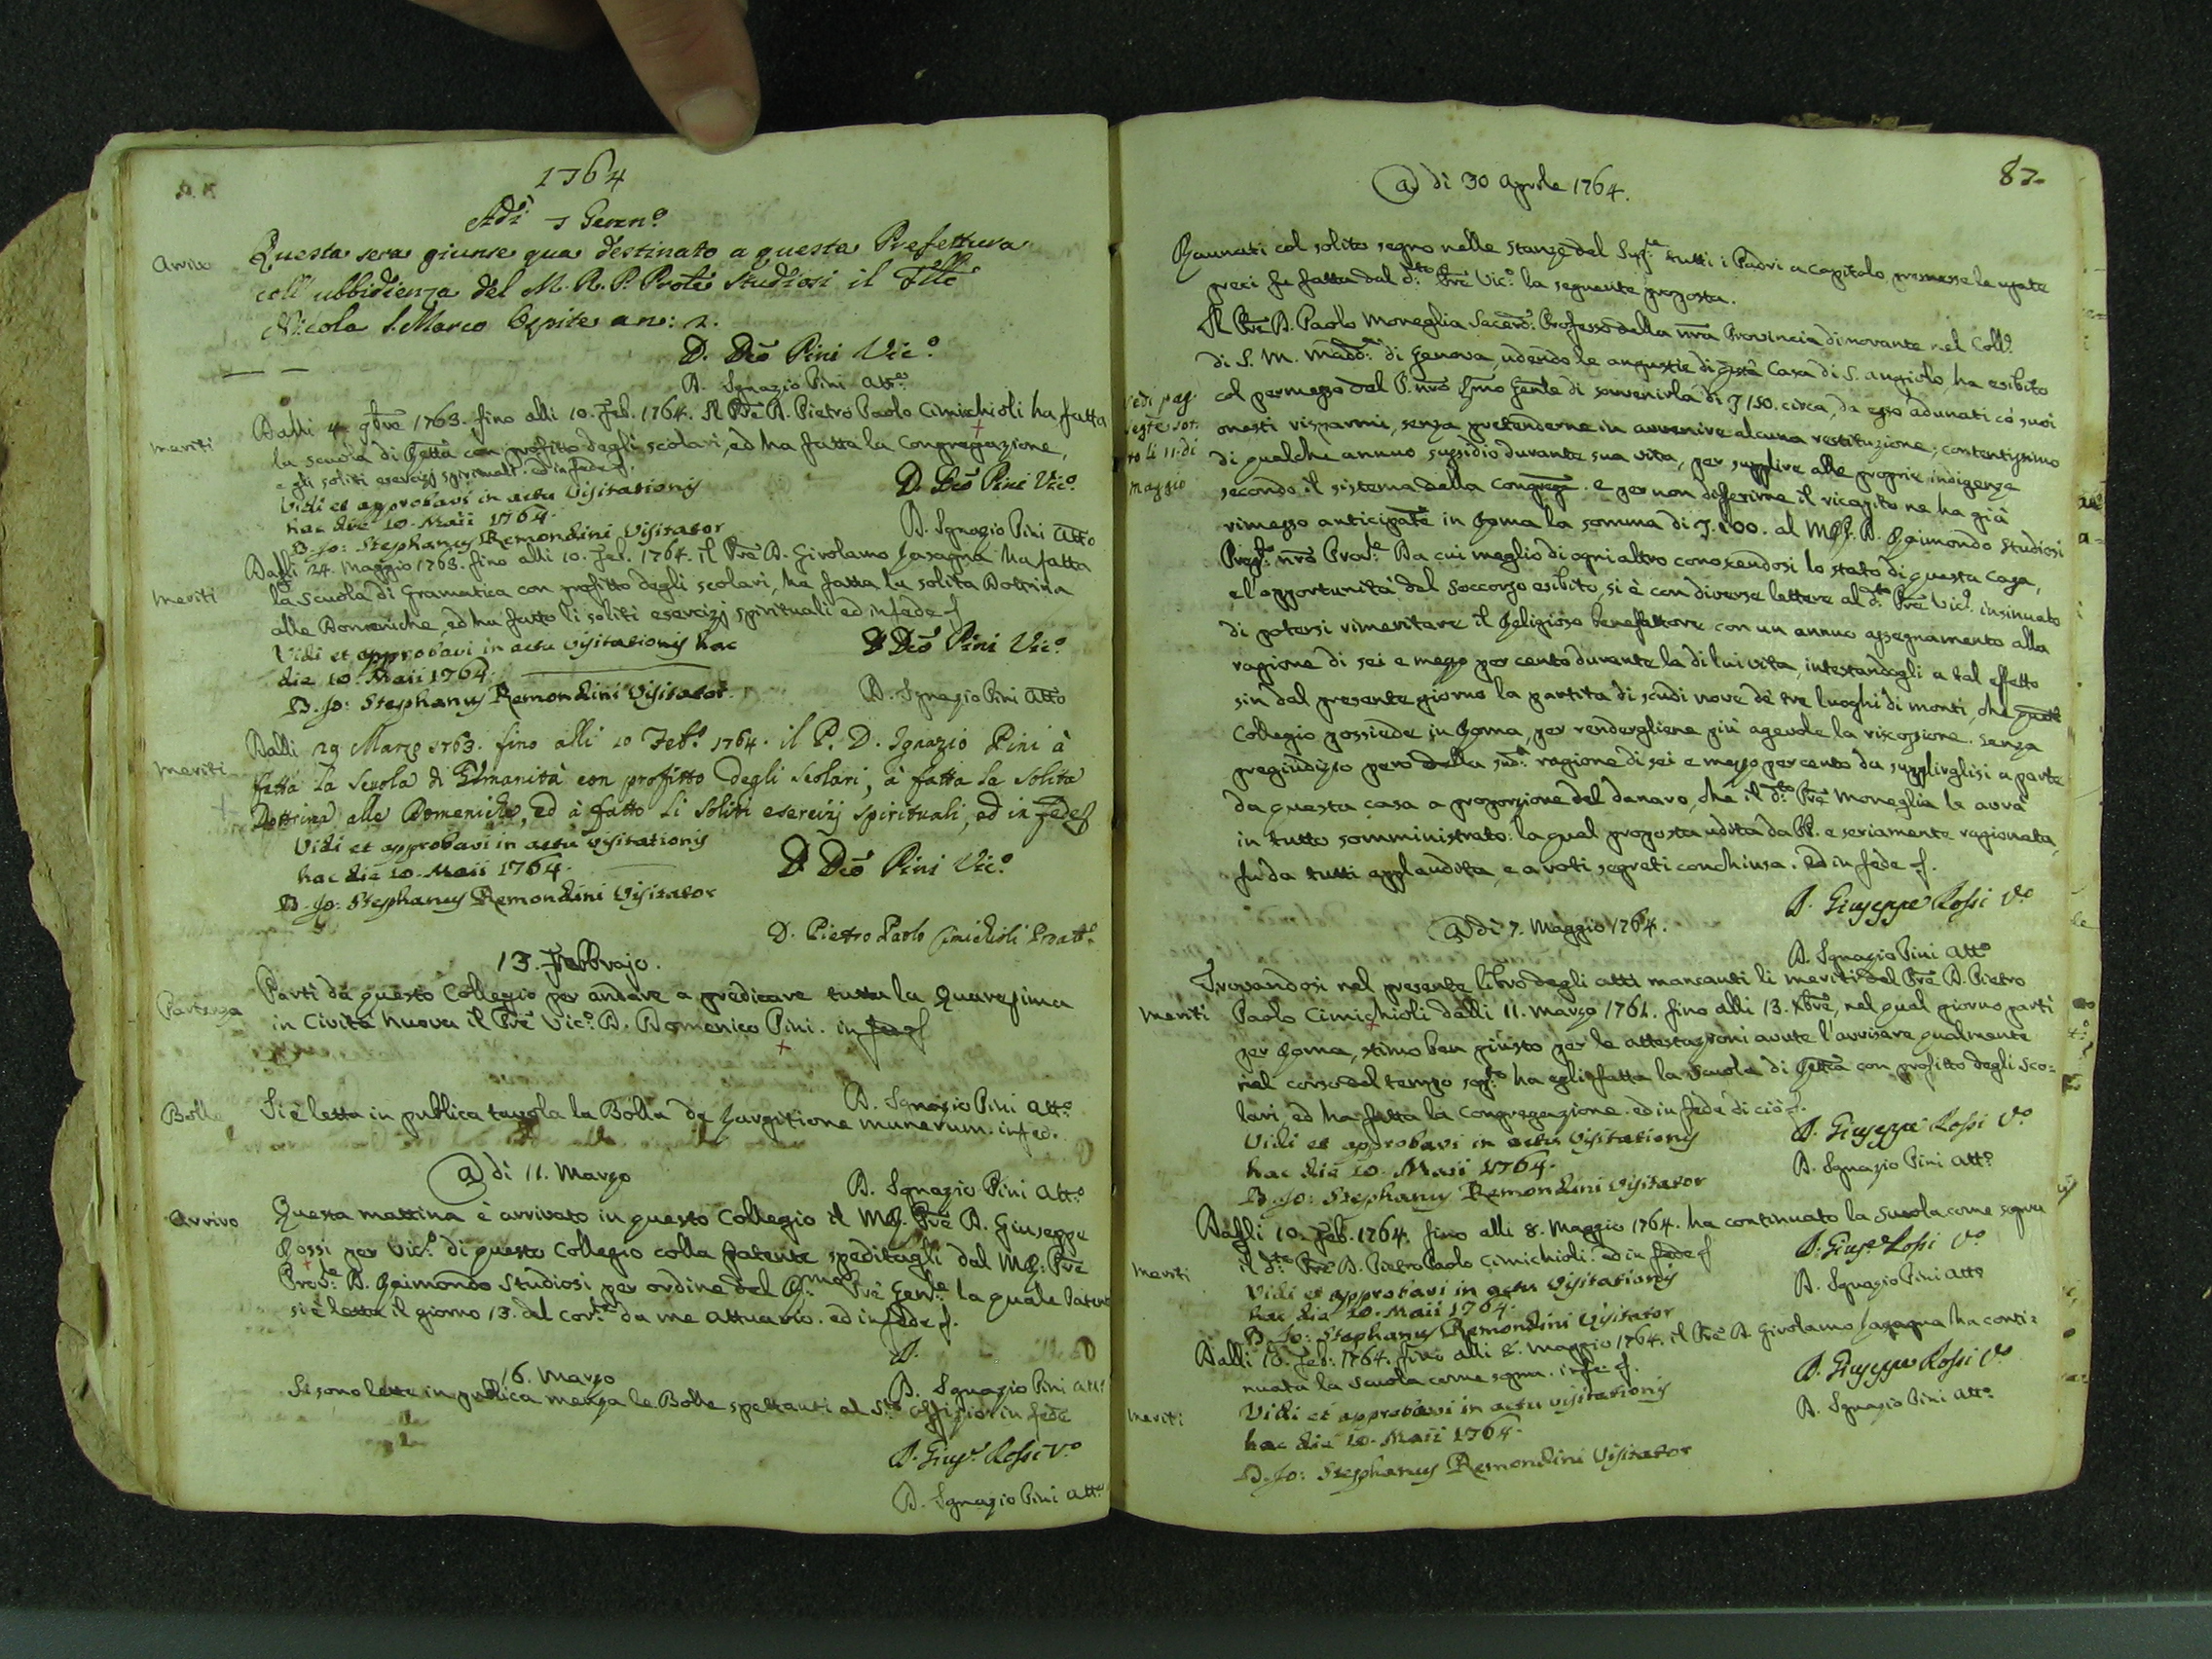 1764
Adì 5 Genn.o
Arrivo
Questa sera giunse qua destinato a questa Prefettura
coll' ubbidienza del M. R. P. Prole Studiosi il Fllo
Nicola S. Marco Ospite an: 2.
D. Dco Pini Vic.o
D. Ignazio Pini Att.o
meriti
Dalli 4 9bre 1763. fino alli 10. Feb. 1764. Il Pre D. Pietro Paolo Cimichioli ha fatta
la scuola di Rettca con profitto degli scolari, ed ha fatta la Congregazione,
e gli soliti esercizj spirituali. ed in fede
Vidi et approbavi in actu Visitationis
hac die 10. Maii 1764.
D. Jo: Stephanus Remondini Visitator
D. Dco Pini Vic.o
D. Ignazio Pini Atto
meriti
Dalli 24. Maggio 1763. fino alli 10. Feb. 1764. il Pre D. Girolamo Lasagna ha fatta
la scuola di Gramatica con profitto degli scolari, ha fatta la solita Dottrina
alle Domeniche, ed ha fatto li soliti esercizj spirituali ed in fede
Vidi et approbavi in actu Visitationis hac
die 10. Maii 1764.
D. Jo: Stephanus Remondini Visitator.
D Dco Pini Vic.o
D. Ignazio Pini Atto
meriti
Dalli 29 Marzo 1763. fino alli 10 Feb.o 1764. il P. D. Ignazio Pini à
fatta la Scuola di Umanità con profitto degli Scolari, à fatta la solita
Dottrina alle Domeniche, ed à fatto li soliti esercizij spirituali, ed in fede
Vidi et approbavi in actu visitationis
hac die 10. Maii 1764.
D. Jo: Stephanus Remondini Visitator
D Dco Pini Vic.o
D. Pietro Paolo Cimichioli Proatt.o
13. Febbrajo.
Partenza
Partì da questo Collegio per andare a predicare tutta la Quaresima
in Civita nuova il Pre Vic.o D. Domenico Pini. in fede
D. Ignazio Pini Att.o
Bolle
Si è letta in publica tavola la Bolla de Largitione munerum. in fed.
D. Ignazio Pini Att.o
@ dì 11. Marzo
Arrivo
Questa mattina è arrivato in questo Collegio il M.R. Pre D. Giuseppe
Rossi per Vic.o di questo Collegio colla patente speditagli dal M.R. Pre
Prov.le D. Raimondo Studiosi per ordine del R.mo Pre Gen.le la quale Patente
si è letta il giorno 13. del cor.te da me Attuario. ed in fede
D.
D. Ignazio Pini Att.o
16. Marzo
Si sono lette in publica mensa le Bolle spettanti al S.to Offizio in fede
D. Gius.e Rossi V.o
D. Ignazio Pini Att.o
82
@ dì 30 Aprile 1764.
Raunati col solito segno nelle stanze del Sup.re tutti i Padri a Capitolo, premesse le usate
preci fu fatta dal d.to Pre Vic.o la seguente proposta.
Il Pre D. Paolo Moneglia Sacerd: Professo della nra Provincia dimorante nel Coll.o
di S. M. Madd.a di Genova, udendo le angustie di qsta Casa di S. Angiolo, ha esibito
col permesso del P. nro Rmo Genle di sovvenirla di 150. circa, da esso adunati co' suoi
onesti risparmi, senza pretenderne in avvenire alcuna restituzione, contentissimo
di qualche annuo sussidio durante sua vita, per supplire alle proprie indigenze
secondo il sistema della Congreg. e per non differirne il ricapito ne ha già
rimesso anticipate in Roma la somma di 100. al M.R. D. Raimondo Studiosi
Prep.o nro Prov.le Da cui meglio di ogni altro conoscendosi lo stato di questa Casa,
e l'opportunità del soccorso esibito, si è con diverse lettere al d.to Pre Vic.o insinuato
di potersi rimeritare il Religioso benefattore con un annuo assegnamento alla
ragione di sei e mezzo per cento durante la di lui vita, intestandogli a tal effetto
sin dal presente giorno la partita di scudi nove de' tre luoghi di monti, che questo
Collegio possiede in Roma, per rendergliene più agevole la riscossione. senza
pregiudizio però della sud.a ragione di sei e mezzo per cento da supplirglisi a parte
da questa casa a proporzione del danaro, che il d.to Pre Moneglia le avrà
in tutto somministrato: la qual proposta udita da PP. e seriamente ragionata,
fu da tutti applaudita, e a voti segreti conchiusa. Ed in fede
vedi pag
segte sot-
to li 11. di
Maggio
D. Giuseppe Rossi V.o
D. Ignazio Pini Att.o
@ dì 7. Maggio 1764.
meriti
Trovandosi nel presente libro degli atti mancanti li meriti del Pre D. Pietro
Paolo Cimichioli dalli 11. Marzo 1762. fino alli 13. Xbre, nel qual giorno partì
per Roma, stimo ben giusto per le attestazioni avute l'avvisare qualmente
nel corso del tempo sop.to ha egli fatta la scuola di Rettca con profitto degli sco:
lari, ed ha fatta la Congregazione. ed in fede di ciò
Vidi et approbavi in actu visitationis
hac die 10. Maii 1764.
D. Jo: Stephanus Remondini Visitator
D. Giuseppe Rossi V.o
D. Ignazio Pini Att.o
meriti
Dalli 10. Feb. 1764. fino alli 8. Maggio 1764. ha continuato la scuola come sopra
il d.to Pre D. Pietro Paolo Cimichioli. ed in fede
Vidi et approbavi in actu Visitationis
hac die 10. Maii 1764.
D. Jo: Stephanus Remondini Visitator
D. Gius.e Rossi V.o
D. Ignazio Pini Atto
meriti
Dalli 10. Feb. 1764. fino alli 8. Maggio 1764. il Pre D. Girolamo Lasagna ha conti:
nuata la scuola come sopra. in fe:
Vidi et approbavi in actu visitationis
hac die 10. Maii 1764.
D. Jo: Stephanus Remondini Visitator
D. Giuseppe Rossi V.o
D. Ignazio Pini Att.o